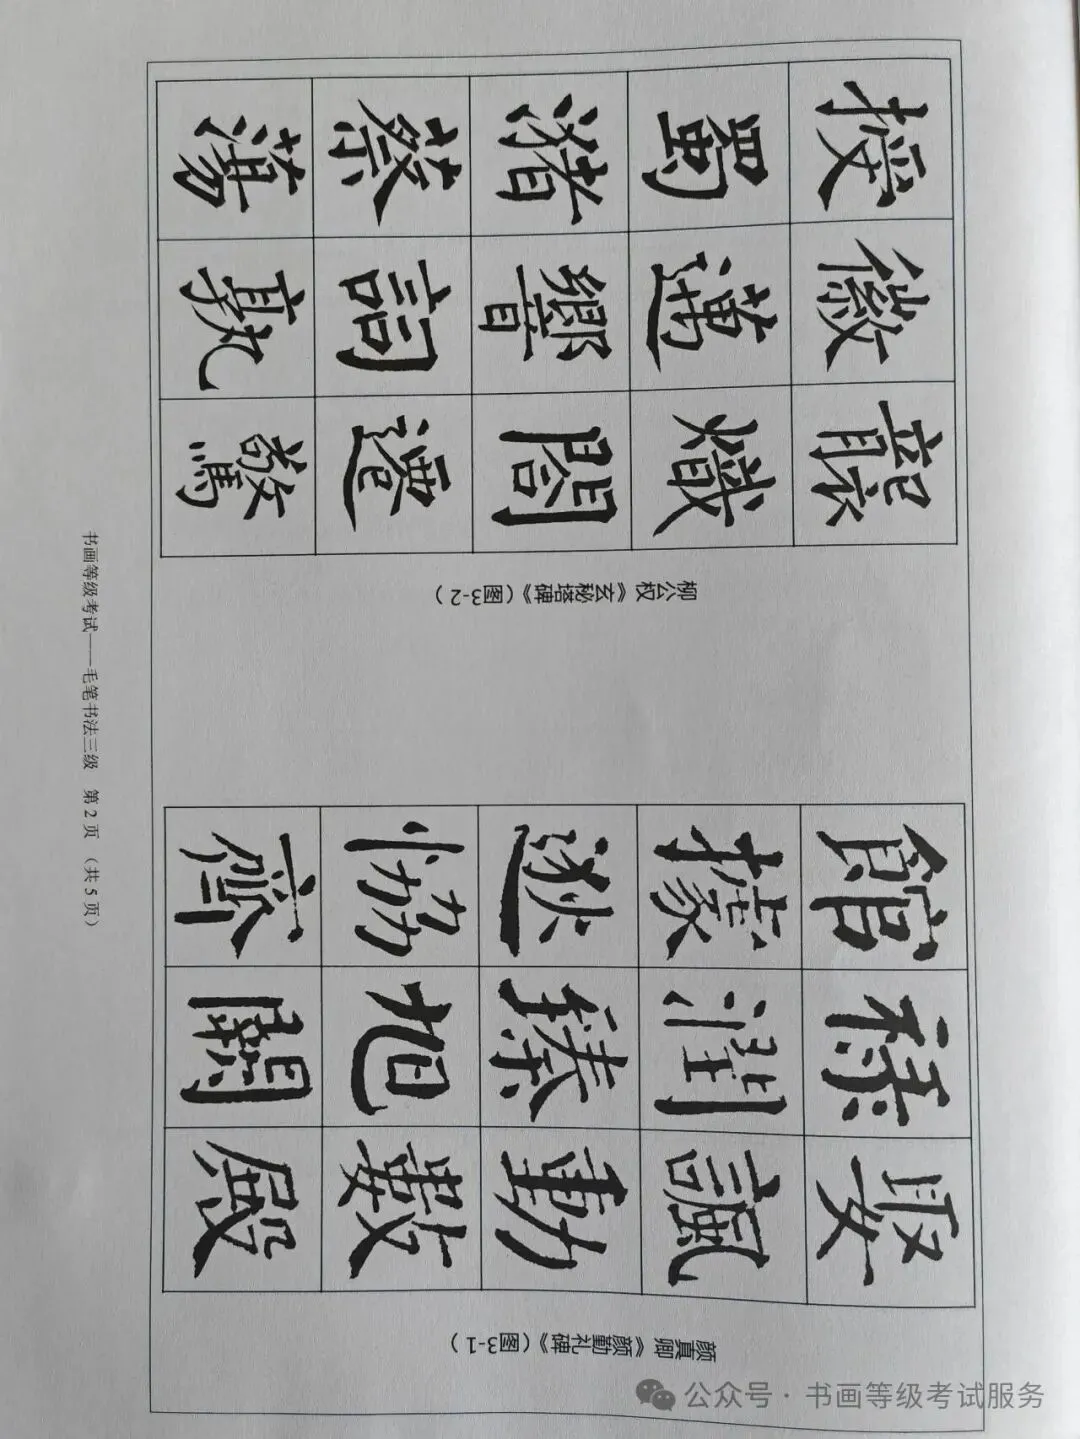 授徽
蜀邁熾
渚響閤
蔡詞遷
蕩孰驚
柳公权《玄秘塔碑》(图3-2)
館祿娶
據潤諷
逖臻動
協旭數
齊闕殿
颜真卿《颜勤礼碑》(图3-1)
书画等级考试——毛笔书法三级 第2页 (共5页)
公众号·书画等级考试服务